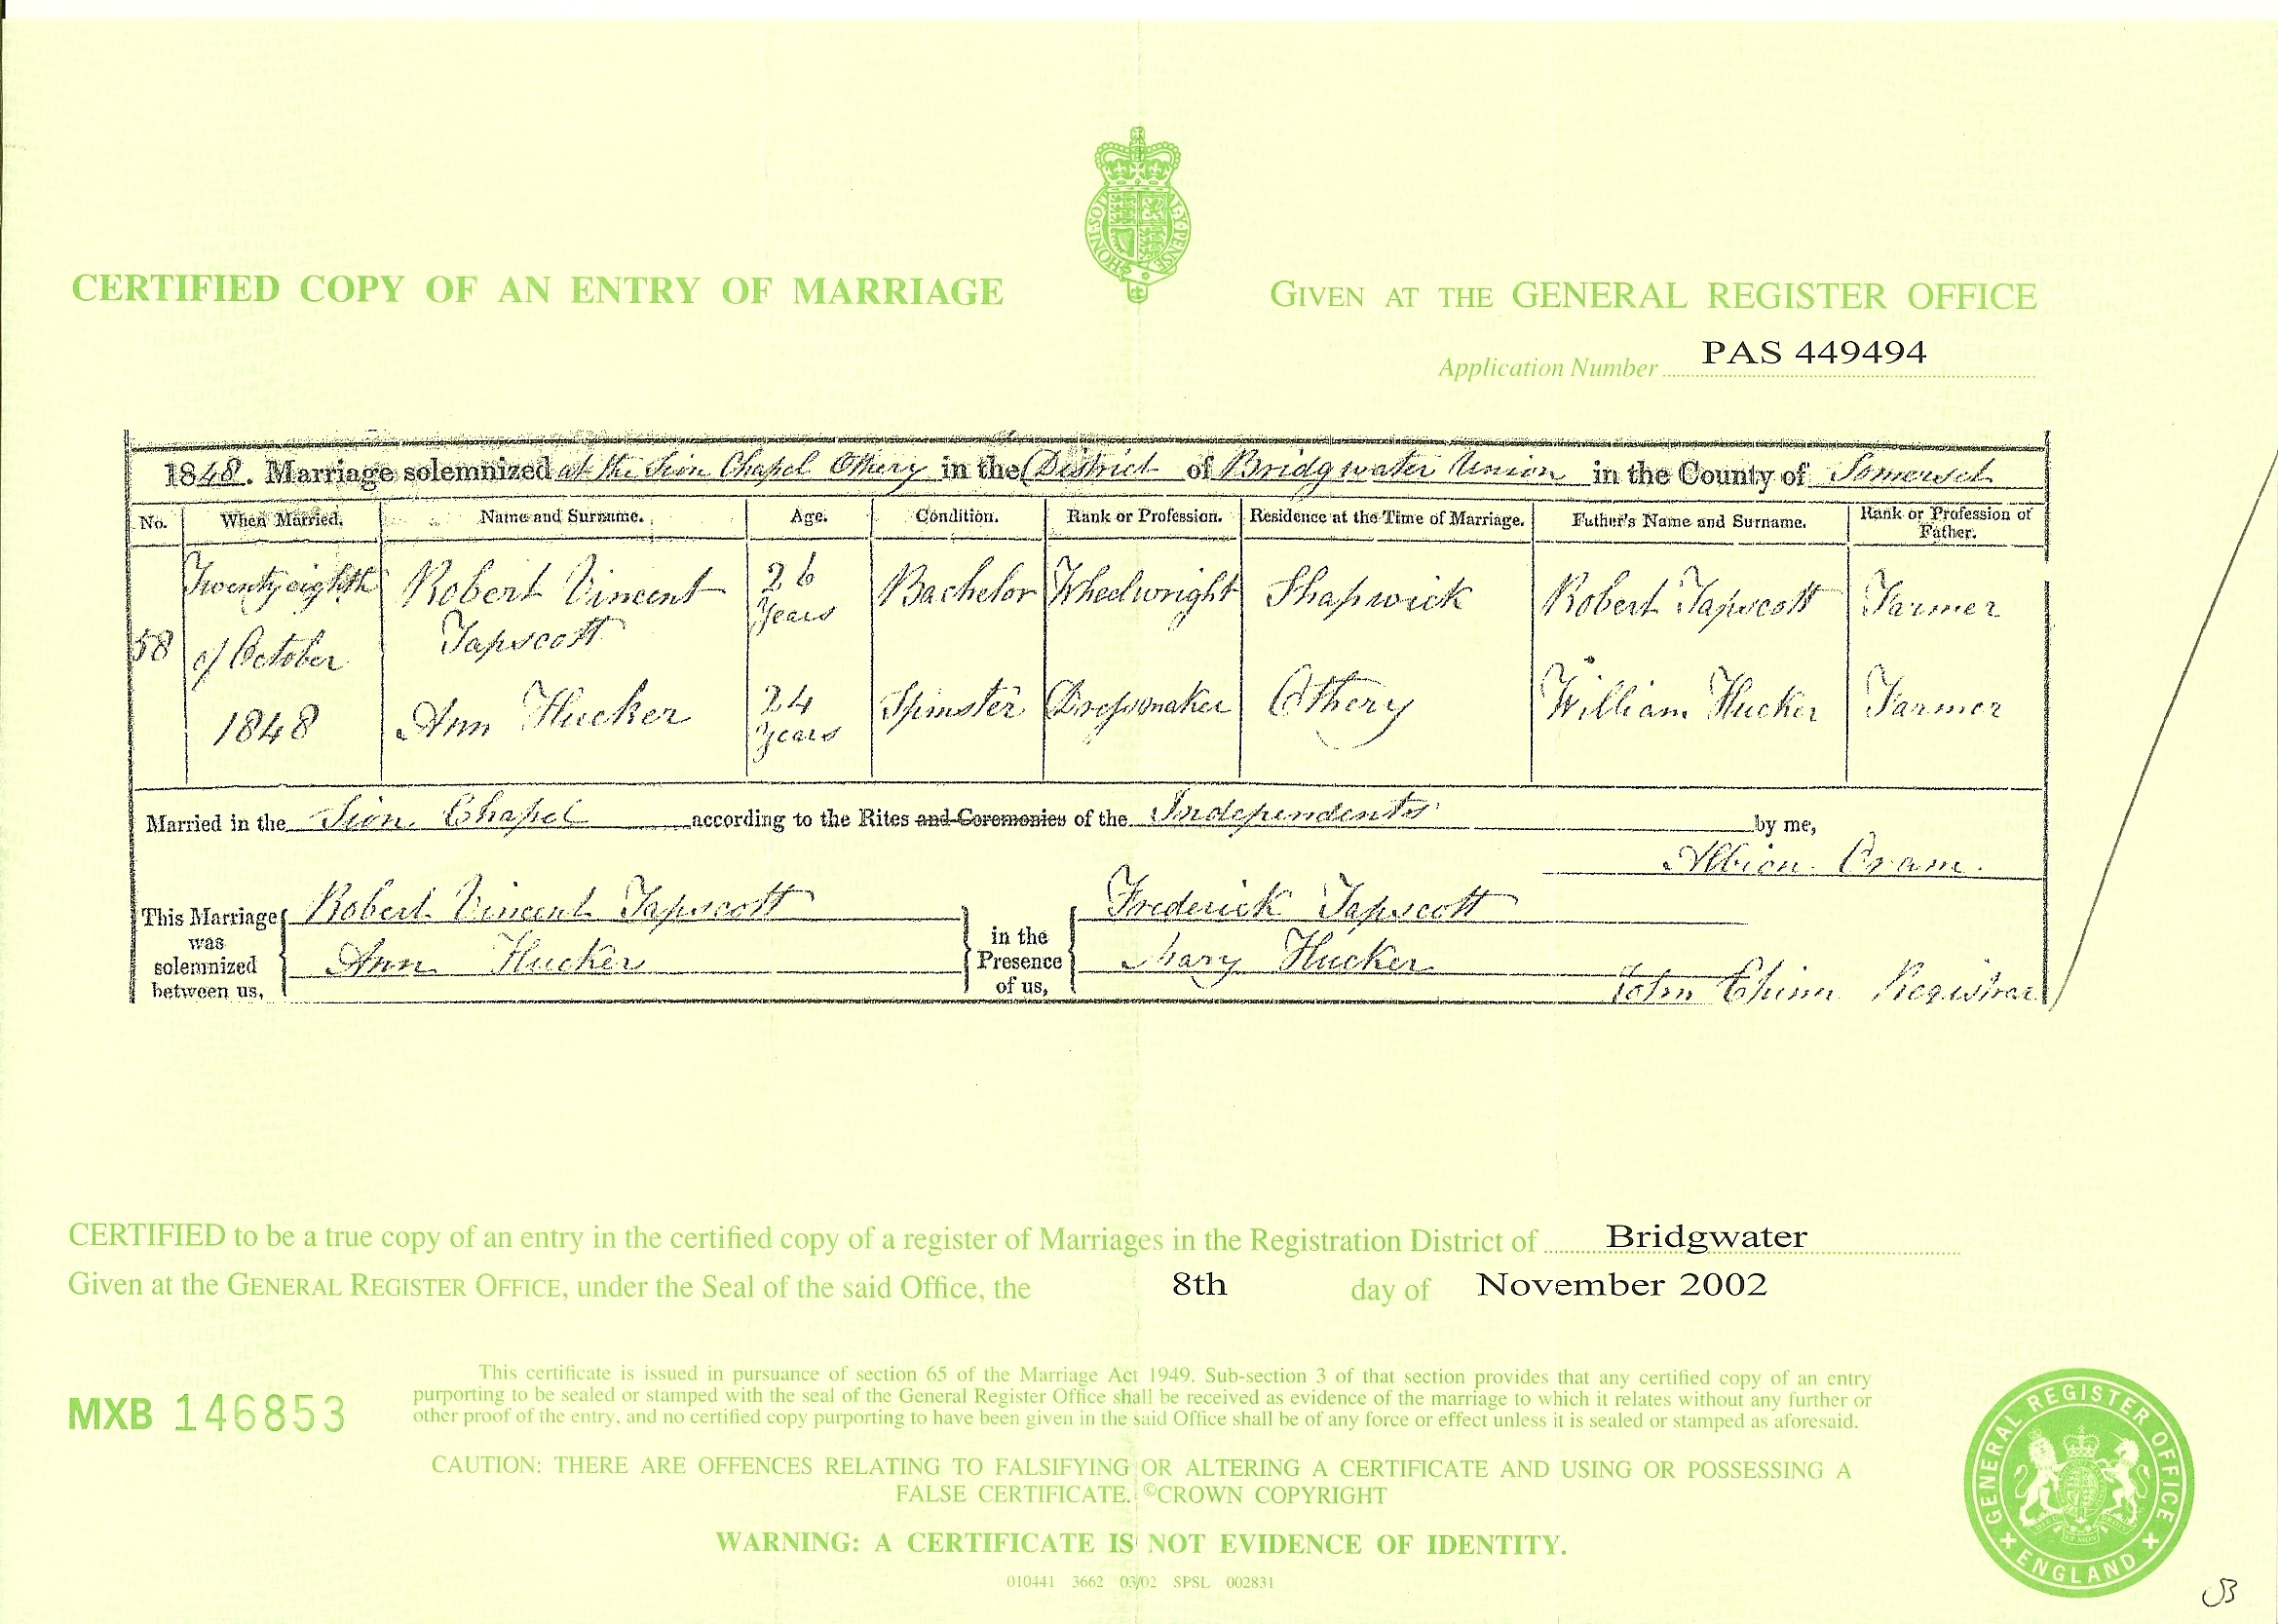 HONI·SOIT Y·PENSE
CERTIFIED COPY OF AN ENTRY OF MARRIAGE
GIVEN AT THE GENERAL REGISTER OFFICE
Application Number PAS 449494
1848. Marriage solemnized at the Sion Chapel Othery in the District of Bridgwater Union in the County of Somerset
No. When Married. Name and Surname. Age. Condition. Rank or Profession. Residence at the Time of Marriage. Father's Name and Surname. Rank or Profession of Father.
58 Twenty eighth of October 1848
Robert Vincent Tapscott 26 years Bachelor Wheelwright Shapwick Robert Tapscott Farmer
Ann Hucker 24 years Spinster Dressmaker Othery William Hucker Farmer
Married in the Sion Chapel according to the Rites and Ceremonies of the Independents by me,
Albion Oram.
This Marriage was solemnized between us, Robert Vincent Tapscott
Ann Hucker
in the Presence of us, Frederick Tapscott
Mary Hucker
John Chinn Registrar
CERTIFIED to be a true copy of an entry in the certified copy of a register of Marriages in the Registration District of Bridgwater
Given at the GENERAL REGISTER OFFICE, under the Seal of the said Office, the 8th day of November 2002
MXB 146853
This certificate is issued in pursuance of section 65 of the Marriage Act 1949. Sub-section 3 of that section provides that any certified copy of an entry
purporting to be sealed or stamped with the seal of the General Register Office shall be received as evidence of the marriage to which it relates without any further or
other proof of the entry, and no certified copy purporting to have been given in the said Office shall be of any force or effect unless it is sealed or stamped as aforesaid.
CAUTION: THERE ARE OFFENCES RELATING TO FALSIFYING OR ALTERING A CERTIFICATE AND USING OR POSSESSING A
FALSE CERTIFICATE. ©CROWN COPYRIGHT
WARNING: A CERTIFICATE IS NOT EVIDENCE OF IDENTITY.
010441 3662 03/02 SPSL 002831
GENERAL REGISTER OFFICE
ENGLAND